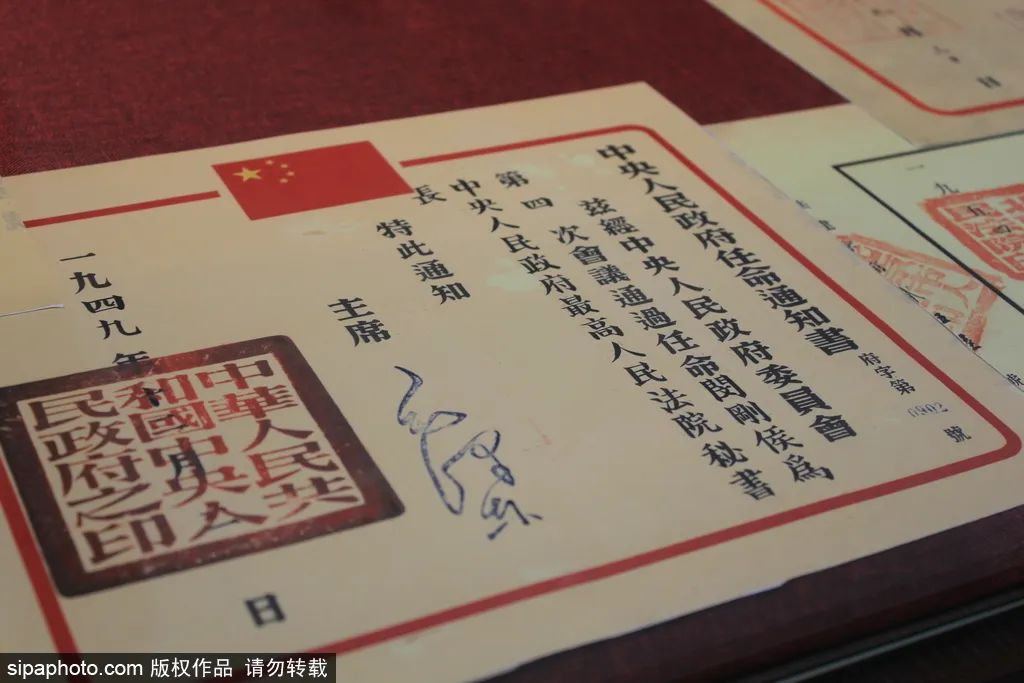 中央人民政府任命通知書
府字第0902號
茲經中央人民政府委員會
第四次會議通過任命閔剛侯爲
中央人民政府最高人民法院秘書
長
特此通知
主席 毛澤東
一九四九年 月 日
中華人民共
和國中央人
民政府之印
一九五四
sipaphoto.com 版权作品 请勿转载